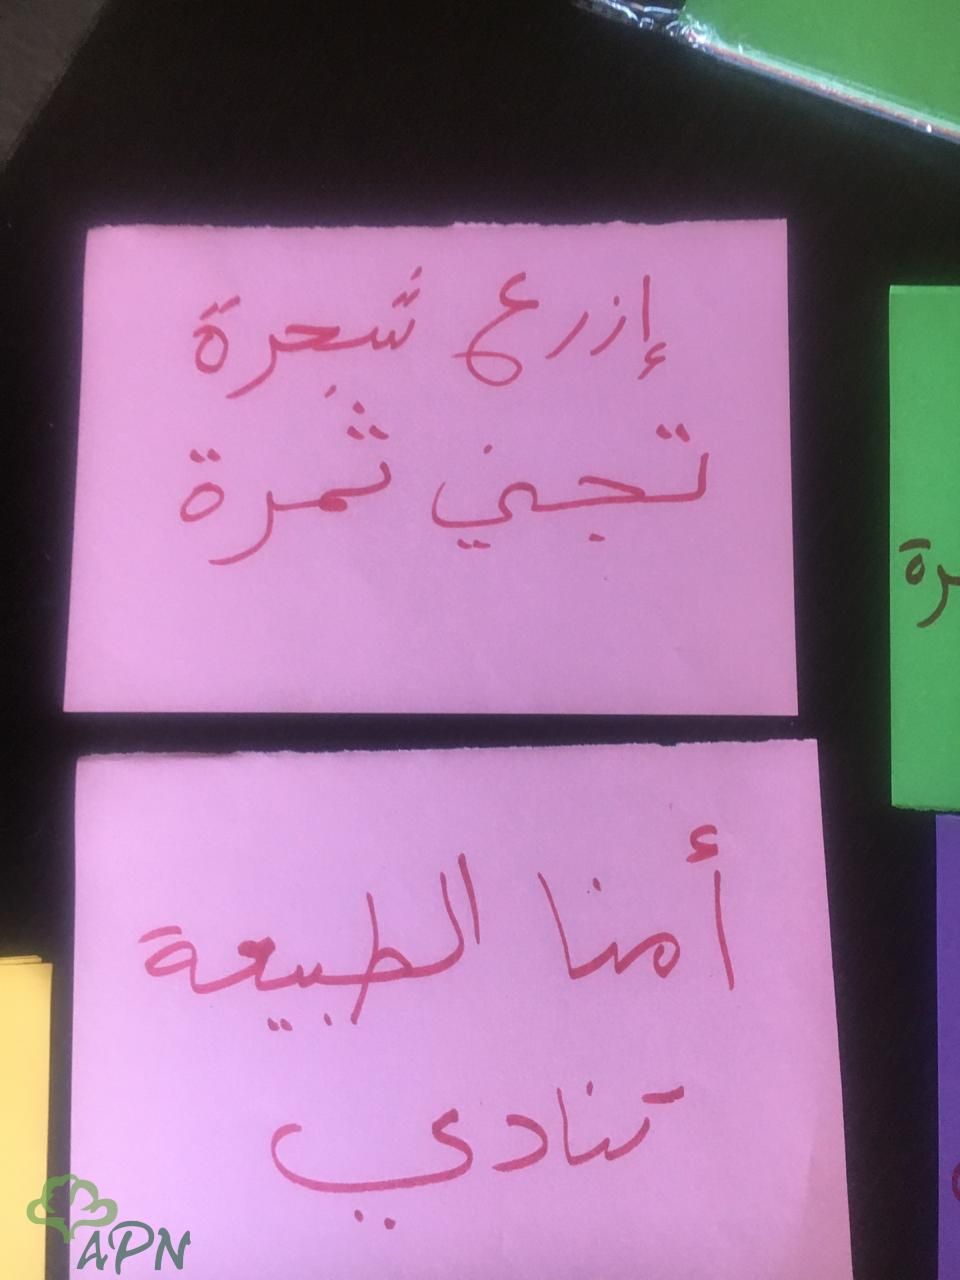 إزرع شجرة
تجني ثمرة
أمنا الطبيعة
تنادي
رة
APN